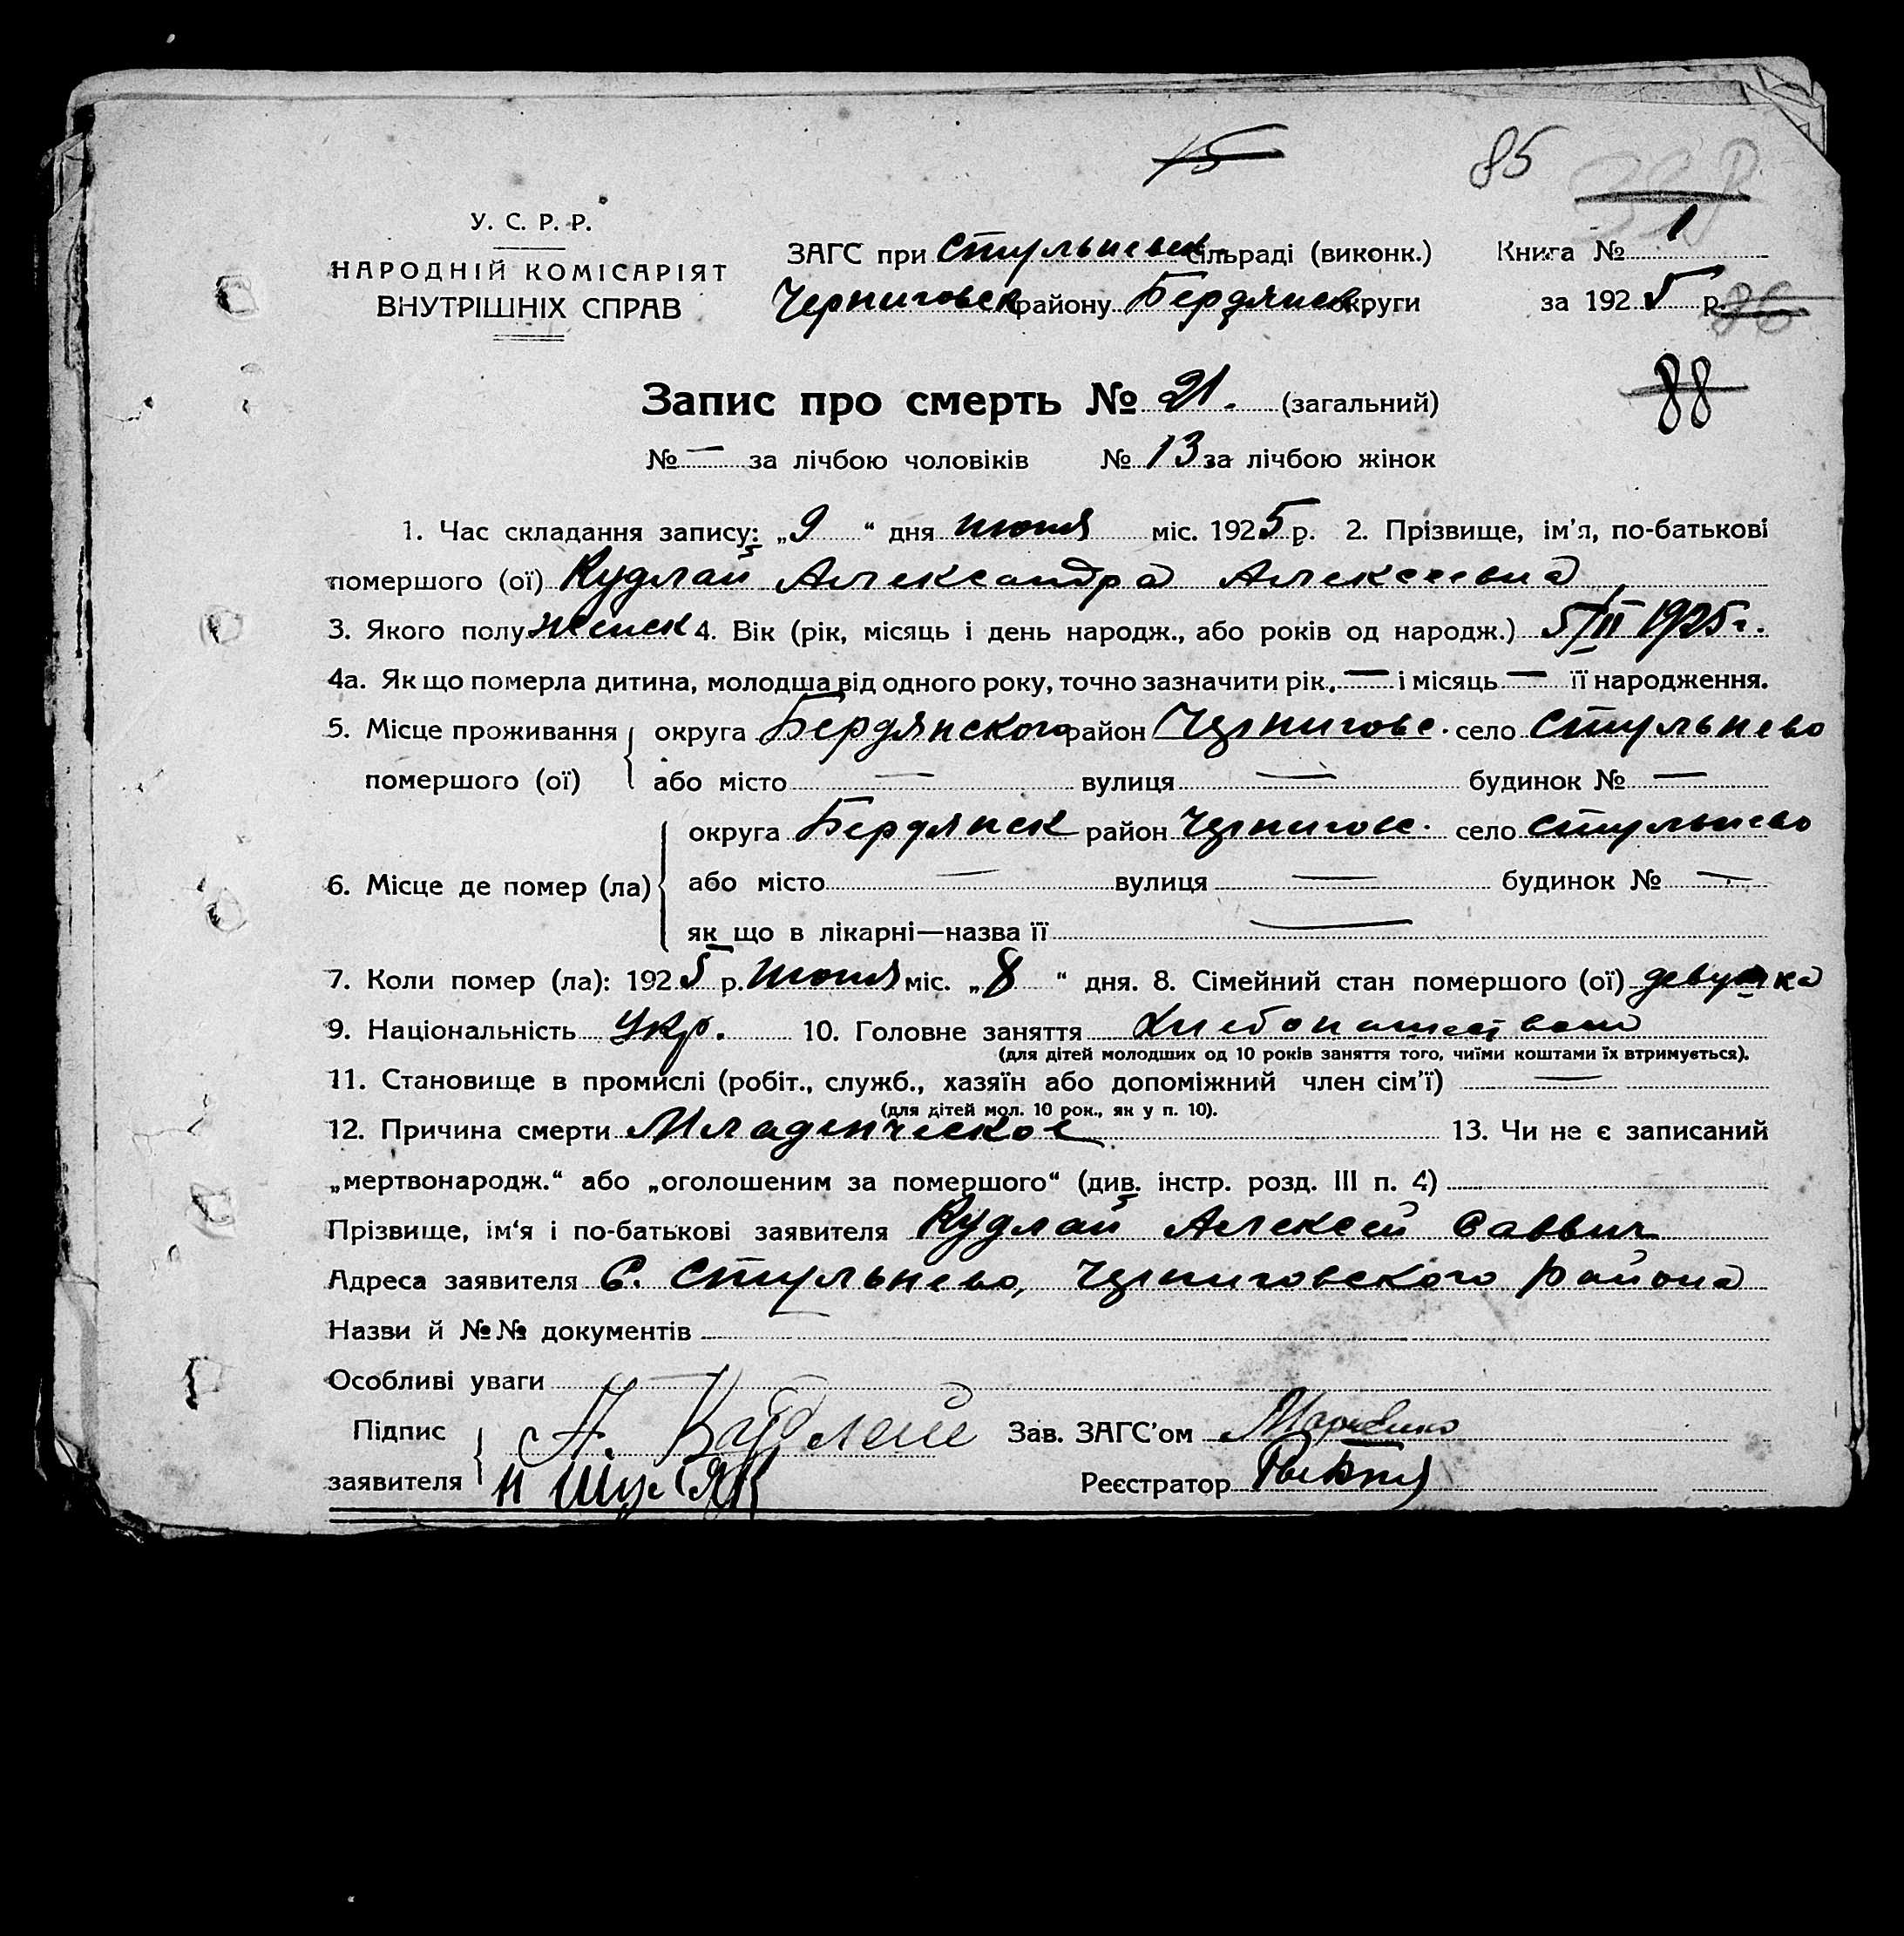 15 85
У. С. Р. Р.
НАРОДНІЙ КОМІСАРІЯТ
ВНУТРІШНІХ СПРАВ
ЗАГС при Стульневск сільраді (виконк.) Книга № 1
Черниговск району Бердянск округи за 1925 р. 86
88
Запис про смерть № 21. (загальний)
№ — за лічбою чоловіків № 13 за лічбою жінок
1. Час складання запису: „9“ дня июня міс. 1925 р. 2. Прізвище, ім'я, по-батькові
помершого (ої) Кудлай Александра Алексеевна
3. Якого полу женск 4. Вік (рік, місяць і день народж., або років од народж.) 5/II 1925 г.
4а. Як що померла дитина, молодша від одного року, точно зазначити рік — і місяць — її народження.
5. Місце проживання округа Бердянского район Черниговс. село Стульнево
помершого (ої) або місто — вулиця — будинок № —
округа Бердянск район Черниговс. село Стульнево
6. Місце де помер (ла) або місто — вулиця — будинок № —
як що в лікарні—назва її —
7. Коли помер (ла): 1925 р. июня міс. „8“ дня. 8. Сімейний стан помершого (ої) девушка
9. Національність Укр. 10. Головне заняття
(для дітей молодших од 10 років заняття того, чиїми коштами їх втримується).
11. Становище в промислі (робіт., служб., хазяїн або допоміжний член сім'ї) —
(для дітей мол. 10 рок., як у п. 10).
12. Причина смерти Младенческое 13. Чи не є записаний
„мертвонародж.“ або „оголошеним за помершого“ (див. інстр. розд. III п. 4)
Прізвище, ім'я і по-батькові заявителя Кудлай Алексей Саввич
Адреса заявителя С. Стульнево, Черниговского района
Назви й №№ документів
Особливі уваги
Підпис А. Кудлай Зав. ЗАГС'ом
заявителя Реєстратор